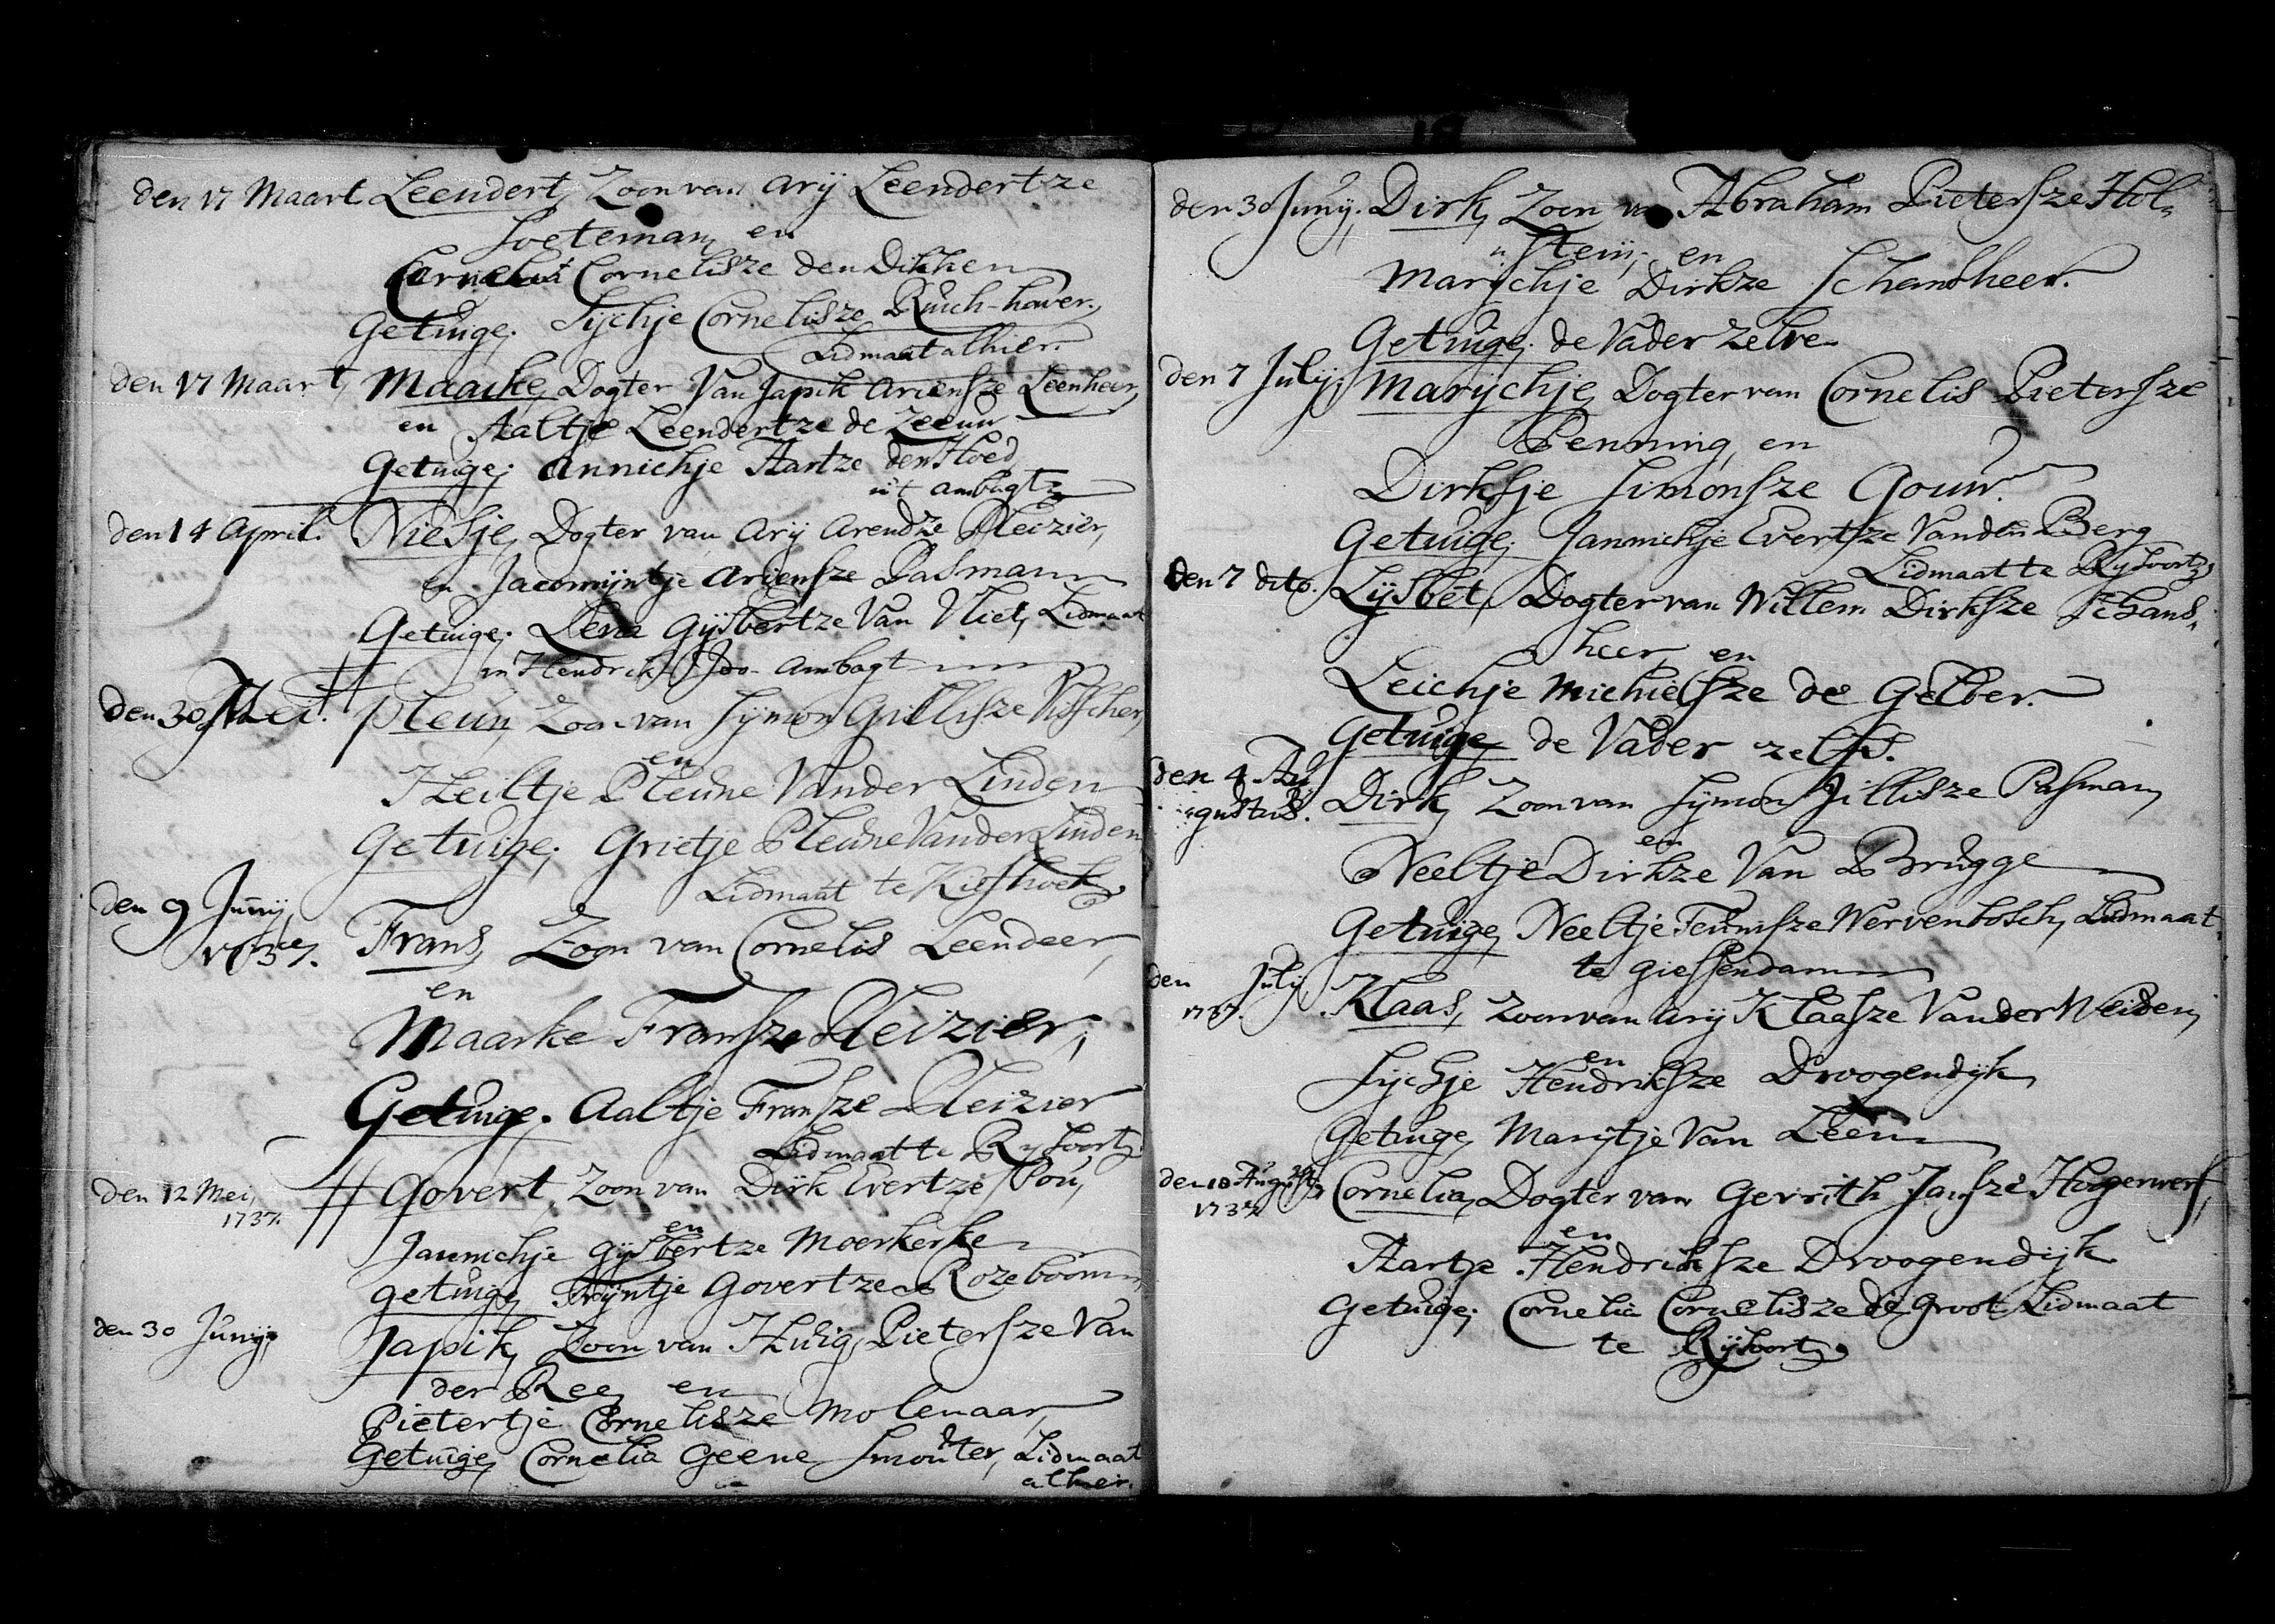 den 17 Maart Leendert, Zoon van Arij Leendertze
Soeteman, en
Cornelia Cornelisze den Dikken
Getuige; Sijchje Cornelisze Ruich-haver,
Lidmaat alhier.
den 17 Maart, Maaike, Dogter Van Japik Ariensze Leenheer,
en Aaltje Leendertze de Zeeuw
Getuige; Annichje Aartze den Hoed
uit ambagt
den 14 April. Niesje, Dogter van Arij Arendze Pleizier,
en Jacomijntje Ariensze Pasman
Getuige; Lena Gijsbertze Van Vliet, Lidmaat
in Hendrik Ido-Ambagt
den 30 Mei. # Pleun, Zoon van Sijmon Gillisze Visscher,
en
Heiltje Pleune Vander Linden
Getuige; Grietje Pleune Vander Linden
Lidmaat te Kiefhoek
den 9 Junij,
1737. Frans, Zoon van Cornelis Leendeer,
en
Maaike Fransze Pleizier;
Getuige. Aaltje Fransze Pleizier
Lidmaat te Rijsoort
den 12 Mei,
1737. # Govert, Zoon van Dirk Evertze Pou,
en
Jannichje Gijsbertze Moerkerke
Getuige, Trijntje Govertze Rozeboom
den 30 Junij, Japik, Zoon van Huig Pietersze Van
der Ree, en
Pietertje Cornelisze Molenaar,
Getuige, Cornelia Geene Smouter, Lidmaat
alhier.
18
den 30 Junij. Dirk, Zoon van Abraham Pietersze Hol-
steijn, en
Marijchje Dirkze Schansheer.
Getuige; de Vader Zelve
den 7 Julij; Marijchje, Dogter van Cornelis Pietersze
Penning, en
Dirksje Simonsze Gouw.
Getuige; Jannichje Evertsze Vanden Berg
Lidmaat te Rijsoort,
den 7 dito. Lijsbet, Dogter van Willem Dirksze Schans-
heer, en
Leichje Michielsze de Gelber.
Getuige, de Vader zelfs.
den 4 Au-
gustus. Dirk, Zoon van Sijmon Jillisze Pasman,
en
Neeltje Dirkze Van Brugge
Getuige, Neeltje Teunisze Wervenbosch, Lidmaat
te Giessendam
den Julij
1737. Klaas, Zoon van Arij Klaasze Vander Weiden,
en
Sijchje Hendriksze Droogendijk
Getuige, Marijtje Van Leen
den 18 August
1737. Cornelia, Dogter van Gerrith Jansze Hogerwerf,
en
Aartje Hendriksze Droogendijk
Getuige; Cornelia Cornelisze de Groot Lidmaat
te Rijsoort.